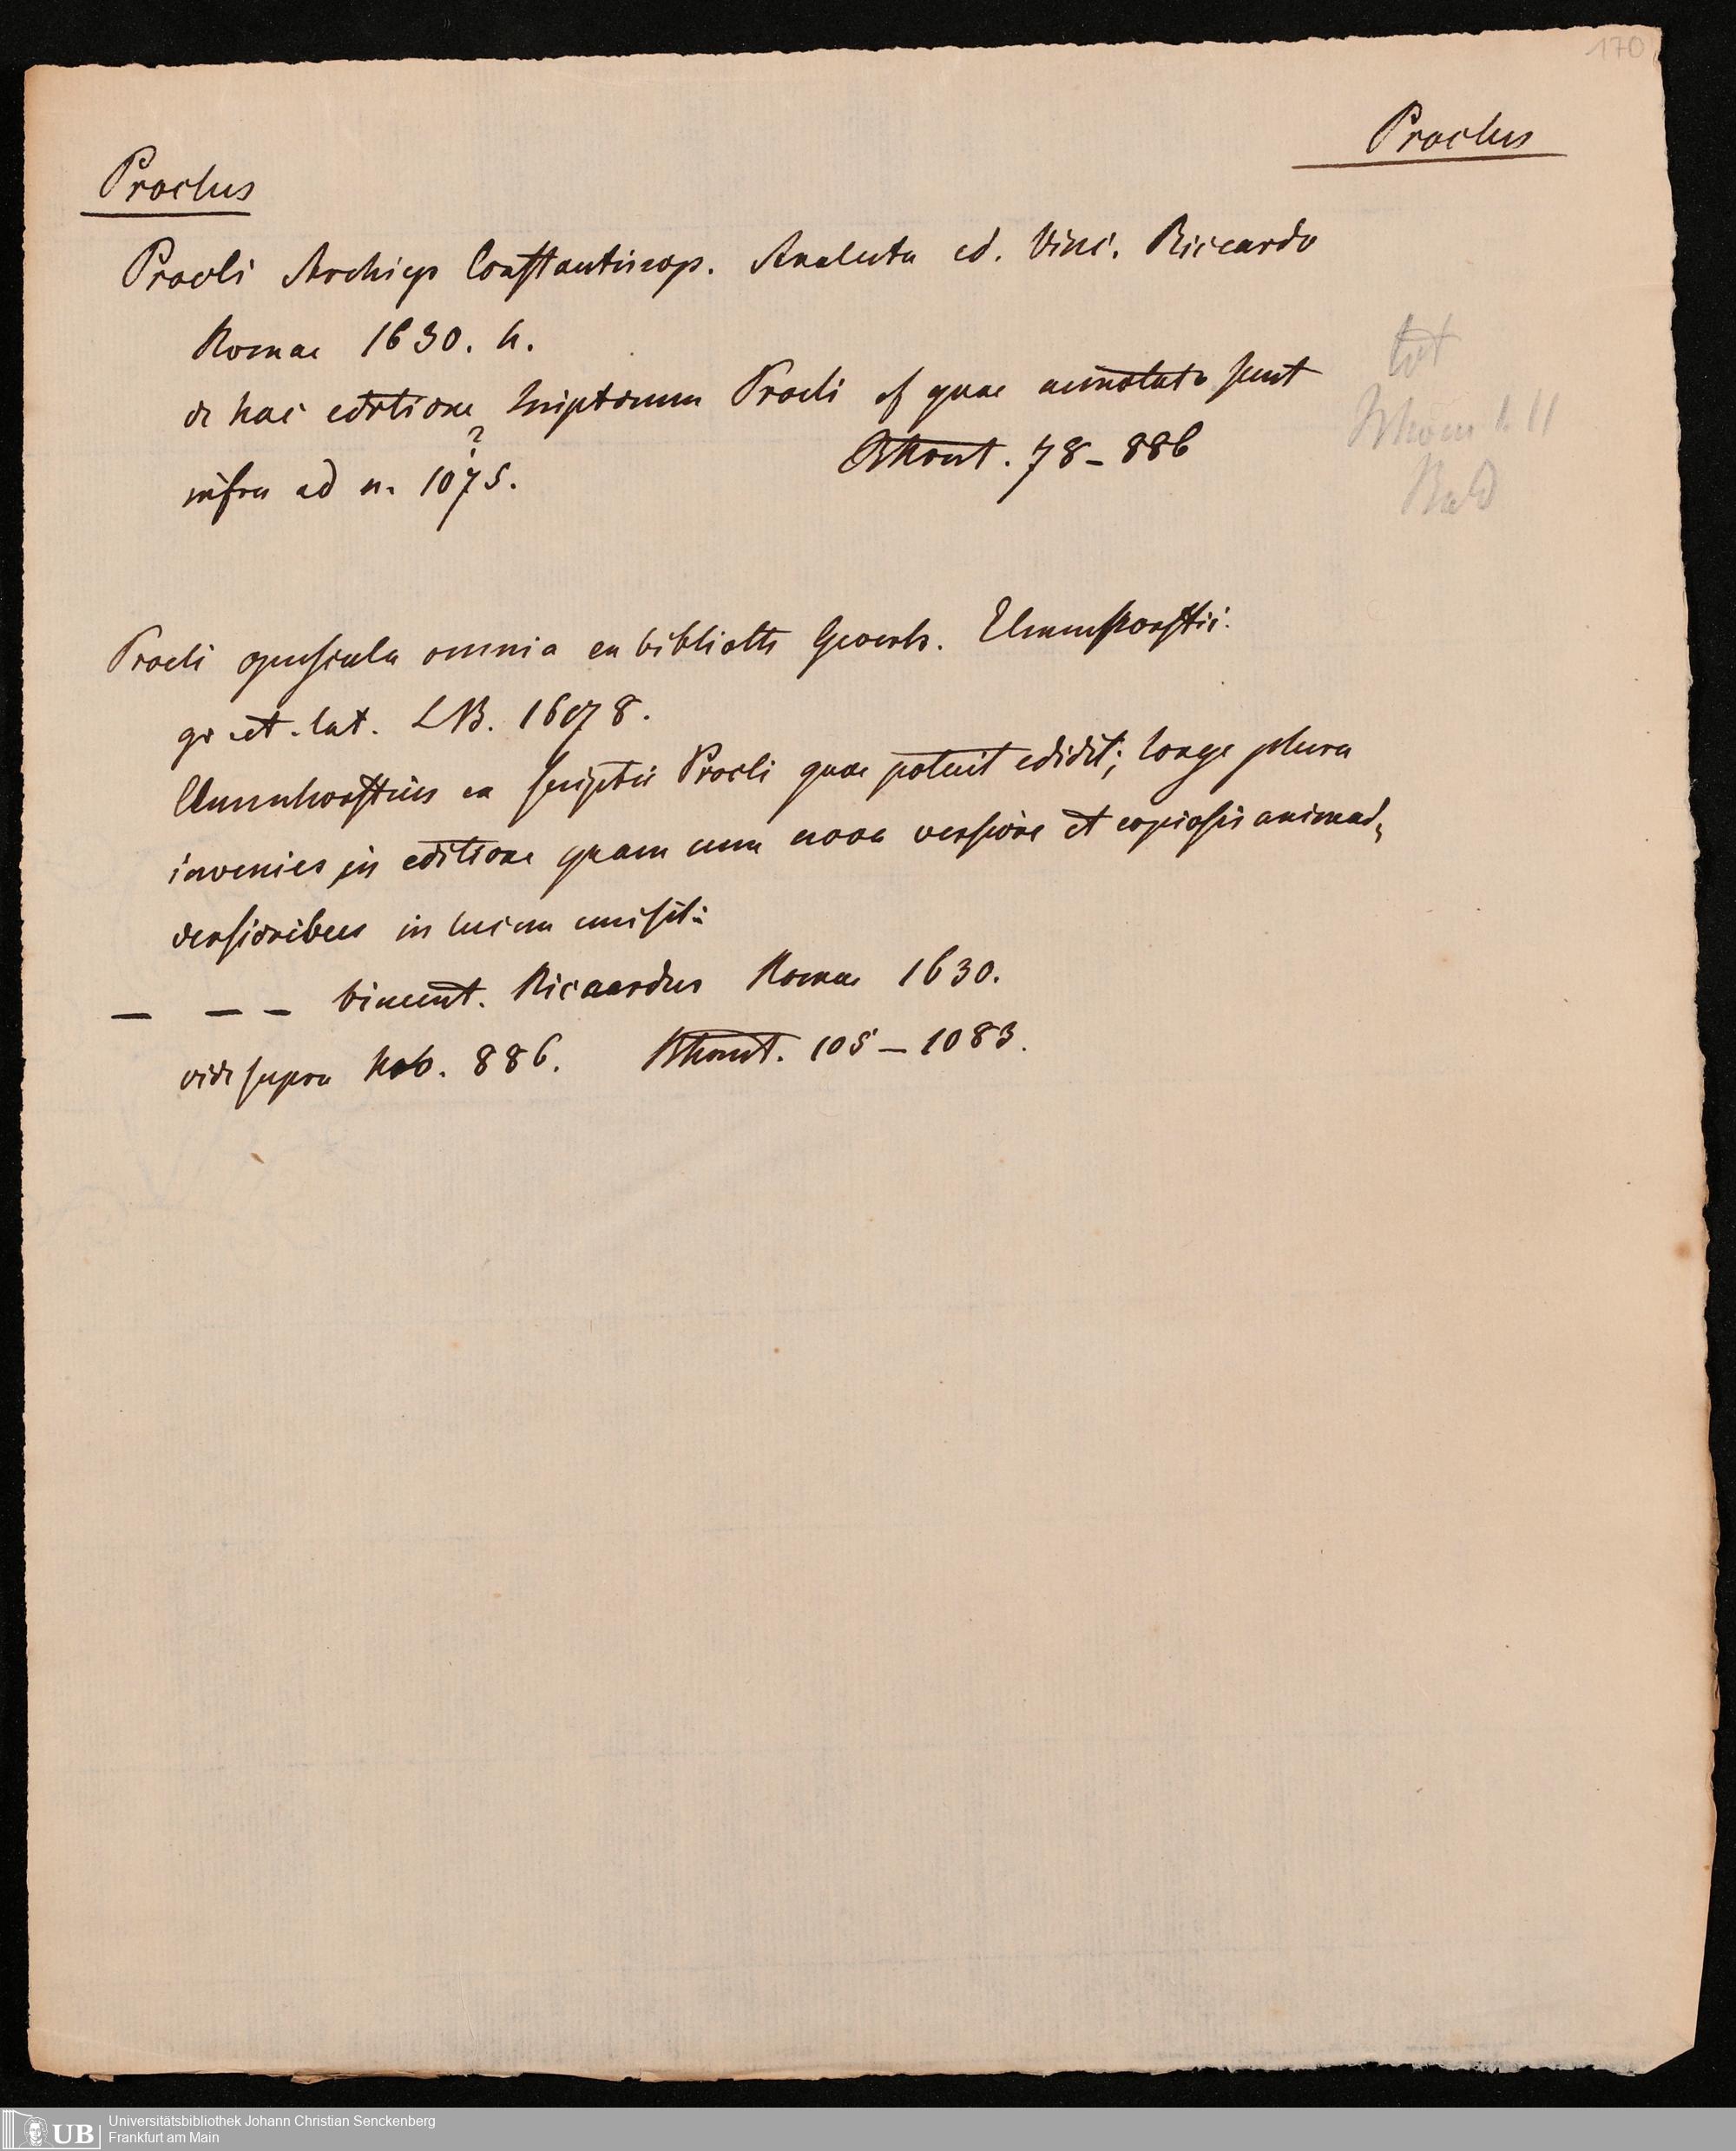 170
Proclus
Proclus
Procli Archiep Constantinop. Analecta ed. Vinc. Riccardo
Romae 1630. 4.
de hac editione scriptorum Procli cf quae annotata sunt
?
infra ad n. 1075. Bkount. 78-886
Procli opuscula omnia ex biblioth Geverh. Elmenhorstii.
gr. et. lat. LB. 1617 8.
Elmenhorstius ex scriptis Procli quae potuit edidit; longe plura
invenies in editione quam cum nova versione et copiosis animad„
versionibus in lucem emisit:
— — — Vincent. Riccardus Romae 1630.
vide supra Nob. 886. 105-1083.
tot
Bald
Universitätsbibliothek Johann Christian Senckenberg
Frankfurt am Main
UB